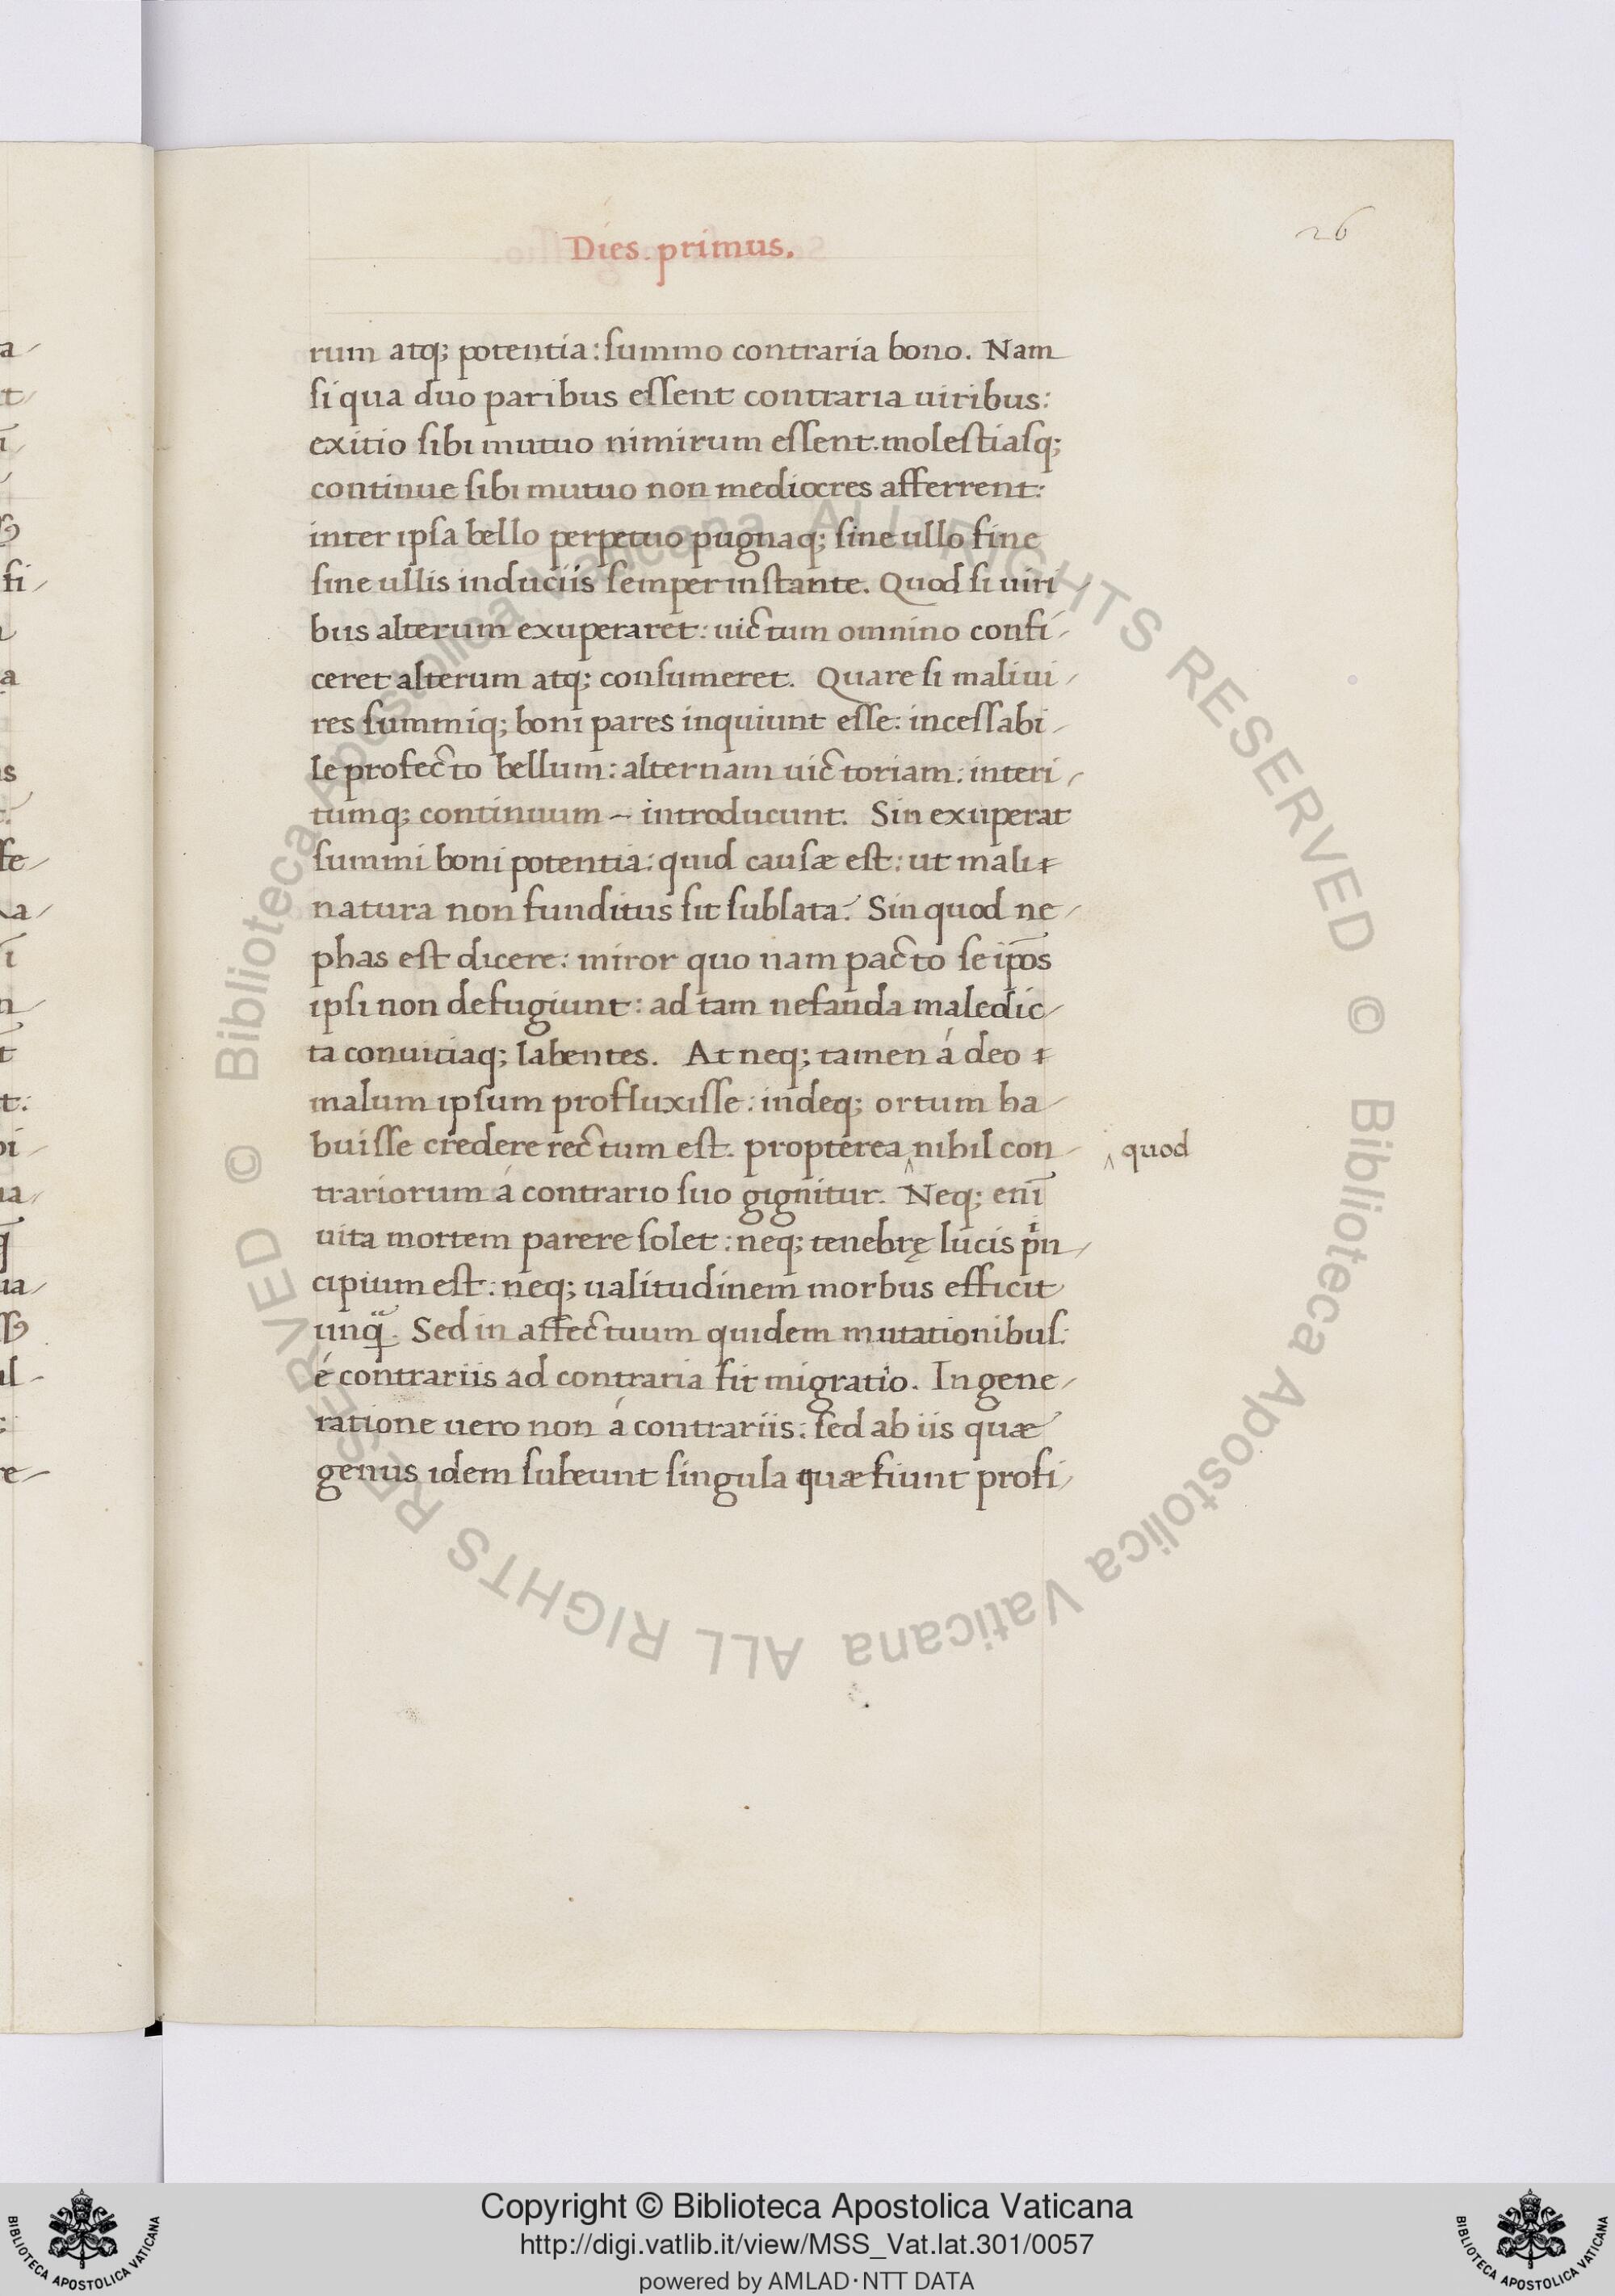 Dies. primus.
26
rum atq; potentia: summo contraria bono. Nam
si qua duo paribus essent contraria uiribus:
exitio sibi mutuo nimirum essent. molestiasq;
continue sibi mutuo non mediocres afferrent:
inter ipsa bello perpetuo pugnaq; sine ullo fine
sine ullis induciis semper instante. Quod si uiri/
bus alterum exuperaret: uictum omnino confi/
ceret alterum atq; consumeret. Quare si mali ui/
res summiq; boni pares inquiunt esse: incessabi/
le profecto bellum: alternam uictoriam: interi/
tumq; continuum – introducunt. Sin exuperat
summi boni potentia: quid causæ est: ut mali
natura non funditus sit sublata? Sin quod ne/
phas est dicere: miror quo nam pacto se ip̅os
ipsi non defugiunt: ad tam nefanda maledic/
ta conuiciaq; labentes. At neq; tamen á deo
malum ipsum profluxisse: indeq; ortum ha/
buisse credere rectum est. propterea ‸ nihil con/
‸ quod
trariorum á contrario suo gignitur. Neq; eni̅
uita mortem parere solet: neq; tenebrę lucis pⁱn/
cipium est: neq; ualitudinem morbus efficit
unq̃. Sed in affectuum quidem mutationibus:
é contrariis ad contraria fit migratio. In gene/
ratione uero non á contrariis: sed ab iis quæ
genus idem subeunt singula quæ fiunt profi/
a/
t/
i̅/
fi/
a
s
se/
a/
i̅
n/
t
t:
bi/
ua/
ua/
ul-
re/
© Biblioteca Apostolica Vaticana ALL RIGHTS RESERVED © Biblioteca Apostolica Vaticana ALL RIGHTS RESERVED
Copyright © Biblioteca Apostolica Vaticana
http://digi.vatlib.it/view/MSS_Vat.lat.301/0057
powered by AMLAD·NTT DATA
BIBLIOTECA APOSTOLICA VATICANA
BIBLIOTECA APOSTOLICA VATICANA